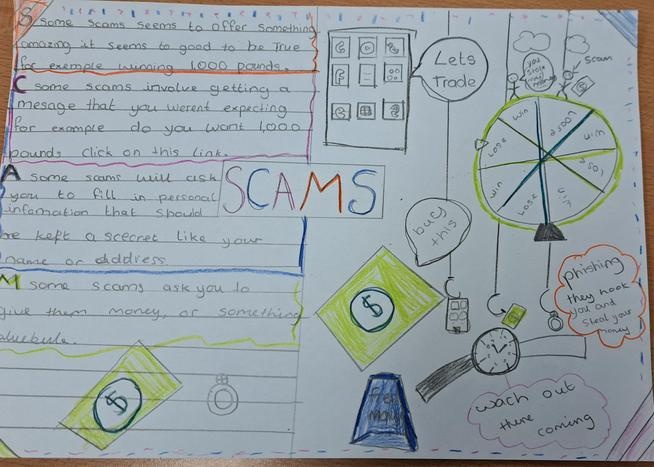 S some Scams seems to offer something
amazing it seems to good to be True
for exemple winning 1,000 pounds.
C some scams involve getting a
mesage that you werent expecting
for example do you want 1,000
pounds click on this link.
A some sams will ask
you to fill in personal
infomation that should
be kept a scecret like your
name or address
M some scams ask you to
give them money, or something
SCAMS
Lets
Trade
buy
this
you
stole
my
scam
win
loose
win
lose
win
Lose
win
phishing
they hook
you and
steal your
money
wach out
there
coming
$
$